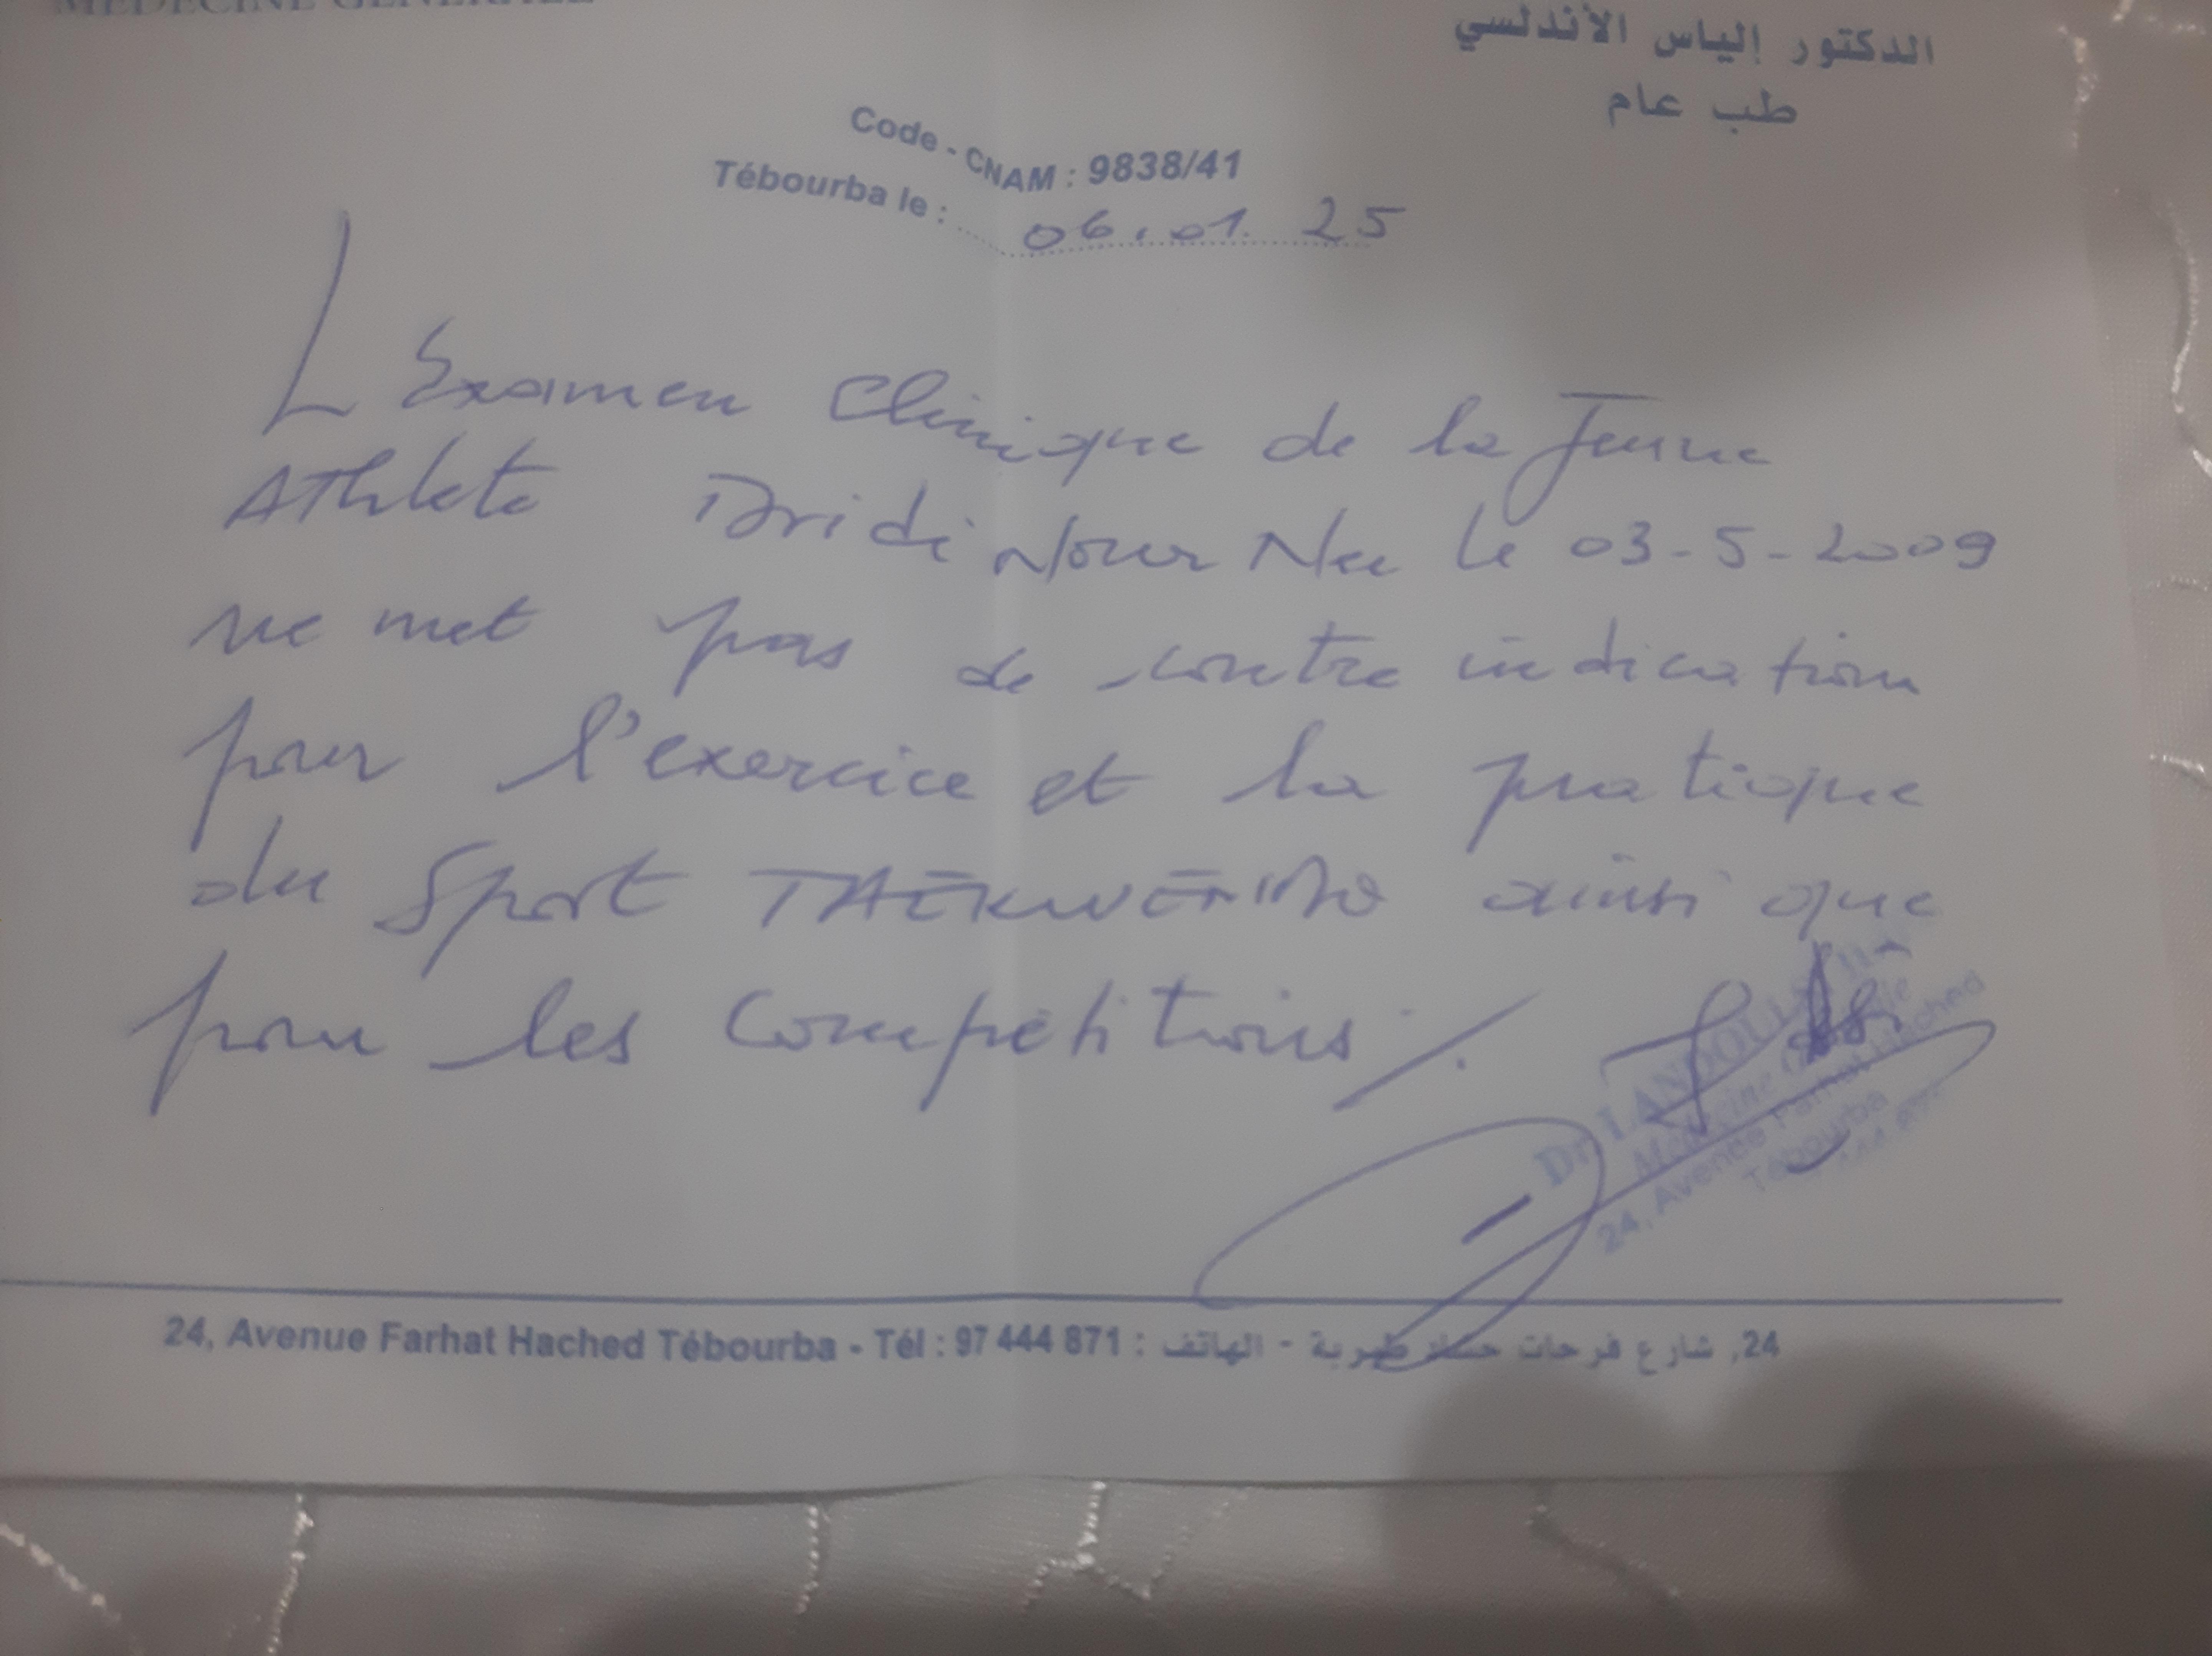 MEDECINE GENERALE
الدكتور إلياس الأندلسي
طب عام
Code - CNAM : 9838/41
Tébourba le : 06.01.25
L'Examen Clinique de la Jeune
Athlete Dridi Nour Nee le 03-5-2009
ne met pas de contre indication
pour l'exercice et la pratique
du Sport TAEKWENDO ainsi que
pour les Compétitions /.
Dr LANDOULSI
Médecine
24, Avenue Farhat Hached
Tébourba
24, Avenue Farhat Hached Tébourba - Tél : 97 444 871 : 24, شارع فرحات حشاد طبربة - الهاتف